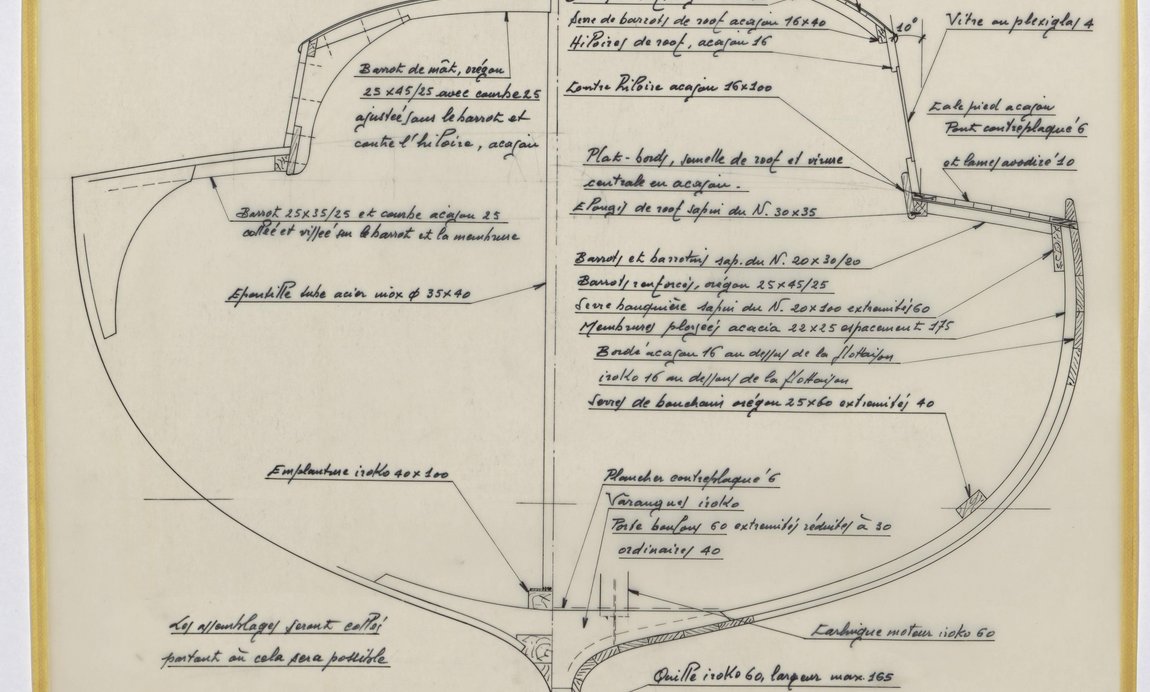 Serre de barrots de roof acajou 16x40
Hiloires de roof, acajou 16
10°
Vitre ou plexiglas 4
Barrot de mât, orégon
25x45/25 avec courbe 25
ajustée sous le barrot et
contre l'hiloire, acajou
Contre hiloire acajou 16x100
Cale pied acajou
Pont contreplaqué 6
et lames avodiré 10
Plat-bords, semelle de roof et virure
centrale en acajou.
Elongis de roof sapin du N. 30x35
Barrot 25x35/25 et courbe acajou 25
collée et vissée sur le barrot et la membrure
Barrots et barrotins sap. du N. 20x30/20
Barrots renforcés, orégon 25x45/25
Serre bauquière sapin du N. 20x100 extremités 60
Membrures ployées acacia 22x25 espacement 175
Epontille tube acier inox φ 35x40
Bordé acajou 16 au dessus de la flottaison
iroko 16 au dessous de la flottaison
Serres de bouchain orégon 25x60 extremités 40
Emplanture iroko 40x100
Plancher contreplaqué 6
Varangues iroko
Porte boulons 60 extremités réduites à 30
ordinaires 40
Les assemblages seront collés
partout où cela sera possible
Carlingue moteur iroko 60
Quille iroko 60, largeur max. 165